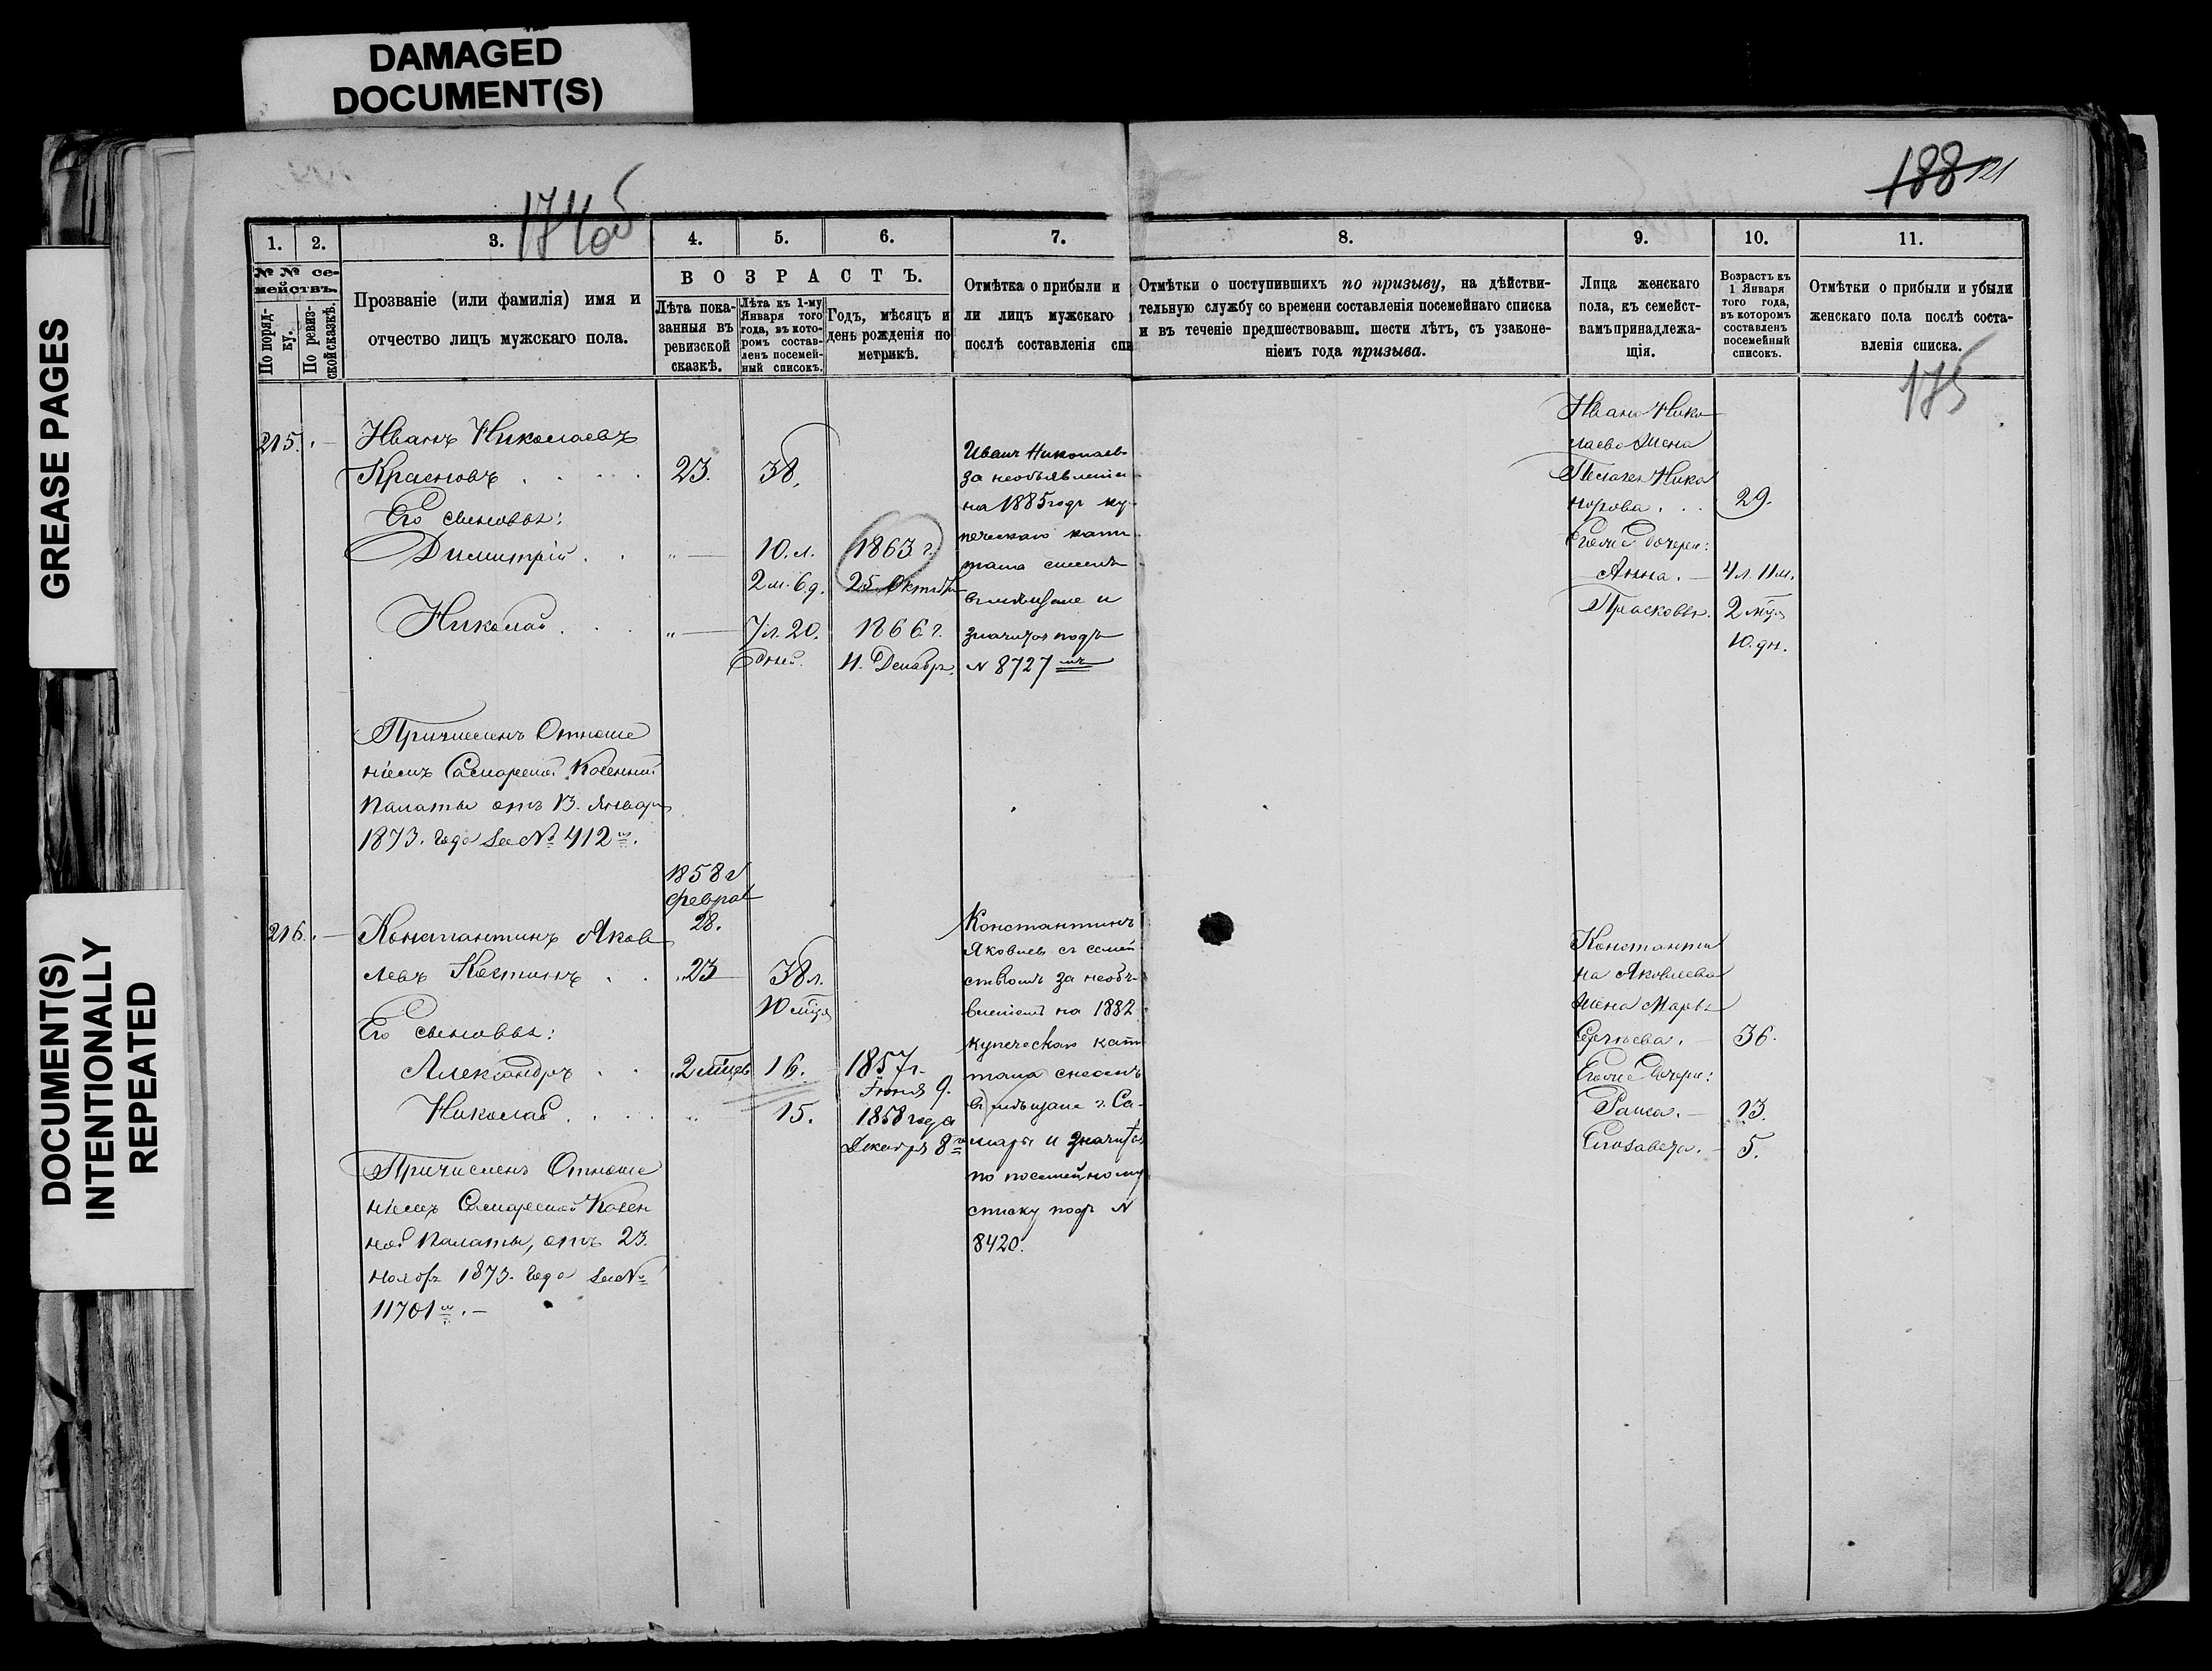 DAMAGED
DOCUMENT(S)
GREASE PAGES
DOCUMENT(S)
INTENTIONALLY
REPEATED
174об
188 121
1.
2.
3.
4.
5.
6.
7.
8.
9.
10.
11.
№ № се-
мействъ.
По поряд-
ку.
По ревиз-
ской сказкѣ.
Прозваніе (или фамилія) имя и
отчество лицъ мужскаго пола.
ВОЗРАСТЪ.
Лѣта пока-
занныя въ
ревизской
сказкѣ.
Лѣта къ 1-му
Января того
года, въ кото-
ромъ состав-
ленъ посемей-
ный списокъ.
Годъ, мѣсяцъ и
день рожденія по
метрикѣ.
Отмѣтка о прибыли и
ли лицъ мужскаго
послѣ составленія спи
Отмѣтки о поступившихъ по призыву, на дѣйстви-
тельную службу со времени составленія посемейнаго списка
и въ теченіе предшествовавш. шести лѣтъ, съ узаконе-
ніемъ года призыва.
Лица женскаго
пола, къ семейст-
вамъ принадлежа-
щія.
Возрастъ къ
1 Января
того года,
въ которомъ
составленъ
посемейный
списокъ.
Отмѣтки о прибыли и убыли
женскаго пола послѣ соста-
вленія списка.
175
215. Иванъ Николаевъ
Красновъ . . . . 23. 38.
Его сыновья:
Димитрій . . " — 10. л. 1863 г.
2 м. 6 д. 25 Октября
Николай . . . " — 7 л. 20. 1866 г.
дней. 11. Декабря.
Иванъ Николаевъ
за необъявленіе
на 1885 годъ ку-
печескаго капи
тала
въ мѣщане и
значится подъ
№ 8727 мъ
Ивана Нико
лаева Жена
Пелагея Нико
норова . . . 29.
Его же дочери:
Анна. — 4 л. 11 м.
Прасковья. 2 мѣся
10. дн.
Причисленъ Отноше
ніемъ Самарской Казенной
Палаты отъ 13. Января
1873. Года за № 412 м.
1858 г
Феврал
28.
216. — Константинъ Яков
левъ Костинъ . . 23 38 л.
10 мѣся
Его сыновья:
Александръ . . 2 мѣсяц 16. 1857 г.
Іюня 9.
Николай . . . . " 15. 1858 года
Декабря 8 го
Константинъ
Яковлевъ съ семей
ствомъ за необъя-
вленіемъ на 1882
купеческаго капи
тала
въ мѣщане г. Са-
мары и значится
по посемейному
списку подъ №
8420.
Константи
на Яковлева
Жена Марья
Сергѣева. — 36.
Его же дочери:
Раиса. — 13.
Елизавета. — 5.
Причисленъ Отноше
ніемъ Самарской Казен
ной Палаты, отъ 23.
Ноября 1873. Года за №
11701 м. —